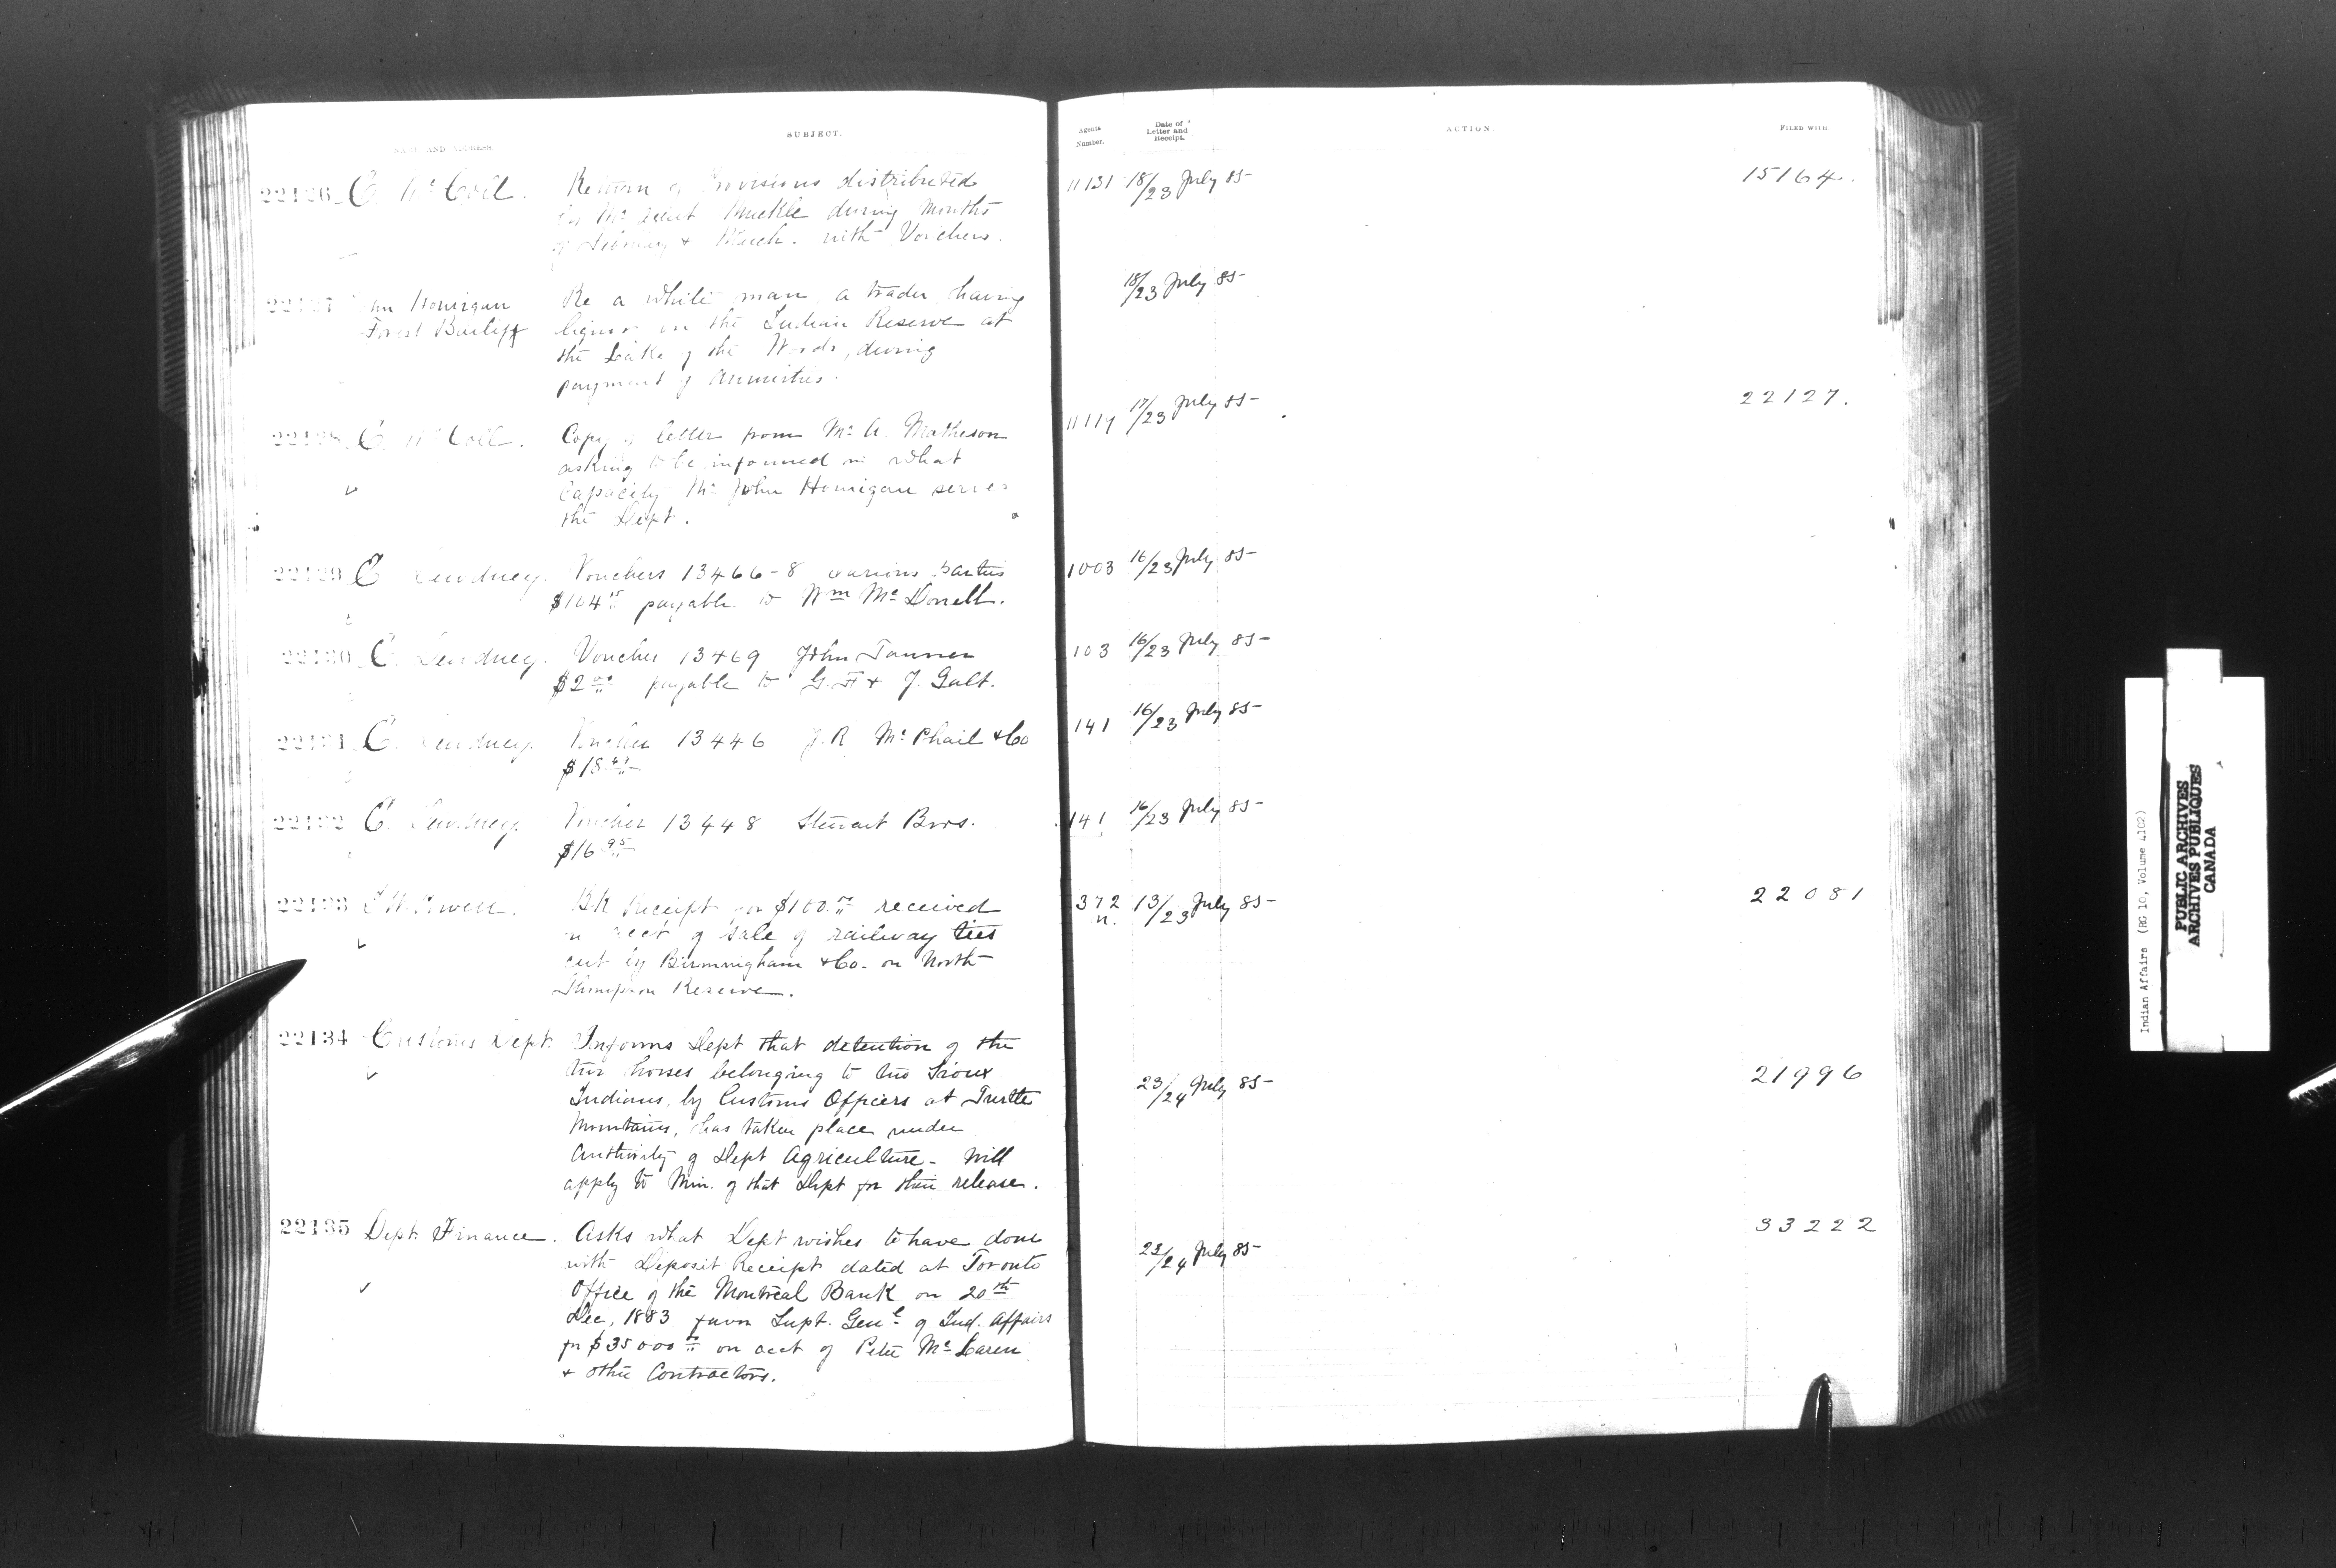 NAME AND ADDRESS.
SUBJECT.
Agents Number.
Date of Letter and Receipt.
ACTION.
FILED WITH.
22126 E. McColl. Return of Provisions distributed
by Mr Muckle during months
of & March. with Vouchers.
11131 18/23 July 85
15164.
22127 Honigan
Forest Bailiff
Re a white man, a trader, having
liquor on the Indian Reserve at
the Lake of the Woods, during
payment of Annuities.
18/23 July 85
22128 E. McColl. Copy of letter from Mr A. Matheson
asking to be informed in what
Capacity Mr John Honigan serves
the Dept.
17/23 July 85
22127.
22129 Vouchers 13466-8 various parties
payable to Wm McDonell.
1003 16/23 July 85
22130 Voucher 13469 John Tanner
$2 00 payable to G. F. & J. Galt.
103 16/23 July 85
22131 Voucher 13446 J. R McPhail & Co
141 16/23 July 85
22132 Voucher 13448 Stewart Bros.
$16 95
141 16/23 July 85
22133 Bk Receipt for received
on acct of sale of railway ties
cut by Birmingham & Co. on North
Thompson Reserve.
372 13/23 July 85
22081
22134 Customs Dept. Informs Dept that detention of the
two horses belonging to two Sioux
Indians, by Customs Officers at Turtle
Mountains, has taken place under
Authority of Dept Agriculture - Will
apply to Min. of that Dept for their release.
23/24 July 85
21996
22135 Dept. Finance. Asks what Dept wishes to have done
with Deposit Receipt dated at Toronto
Office of the Montreal Bank on 20th
Dec, 1883 favor Supt. Genl of Ind. Affairs
for $35000 00 on acct of Peter McLaren
& other Contractors.
23/24 July 85
33222
Indian Affairs (RG 10, Volume 4102)
PUBLIC ARCHIVES
ARCHIVES PUBLIQUES
CANADA